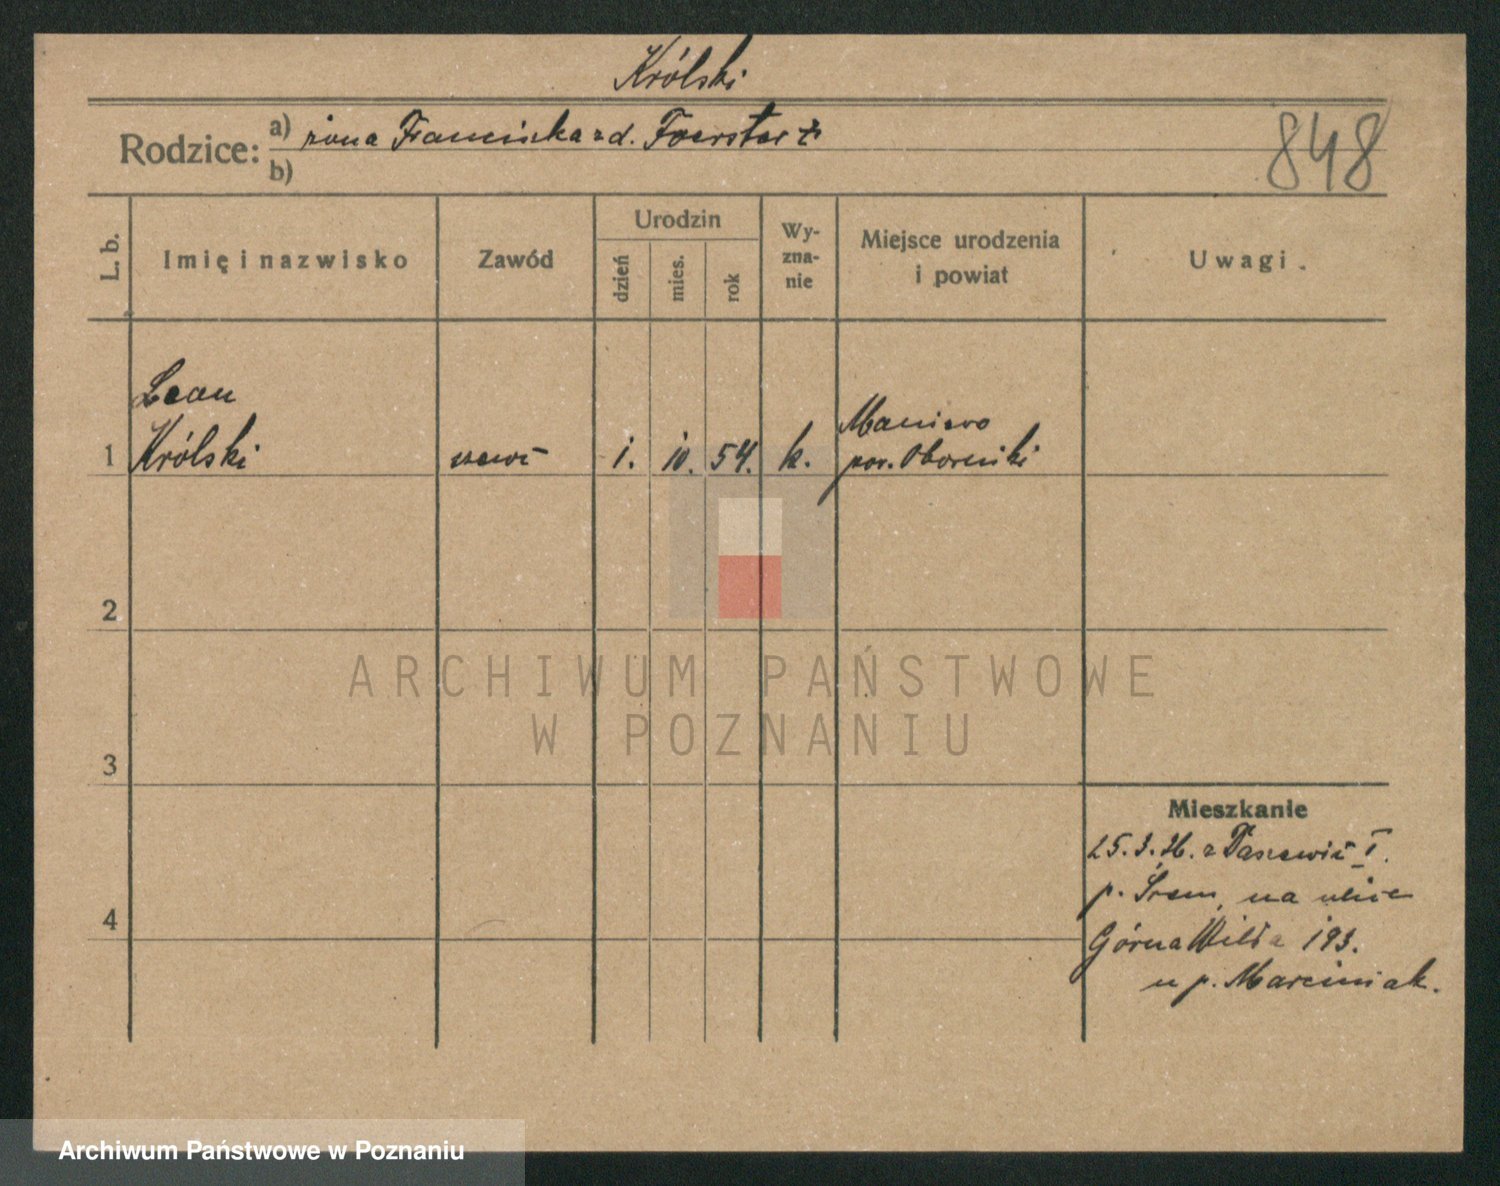 Królski
Rodzice: a) żona Franciszka zd. Foerster +
b)
848
L. b.
Imię i nazwisko
Zawód
Urodzin
dzień
mies.
rok
Wy-
zna-
nie
Miejsce urodzenia
i powiat
Uwagi.
Leon
1 Królski szewc 1. 10. 54. k.
Maniewo
pow. Oborniki
2
3
4
Mieszkanie
25.3.26. z
p. Śrem, na ulicę
Górna Wilda 193.
u p. Marciniak.
ARCHIWUM PAŃSTWOWE
W POZNANIU
Archiwum Państwowe w Poznaniu